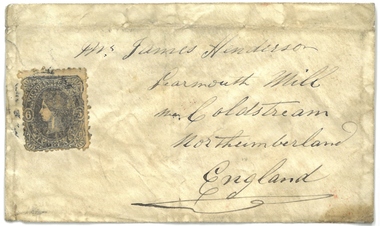 Mr James Henderson
Learmouth Mill
nr. Coldstream
Northumberland
England